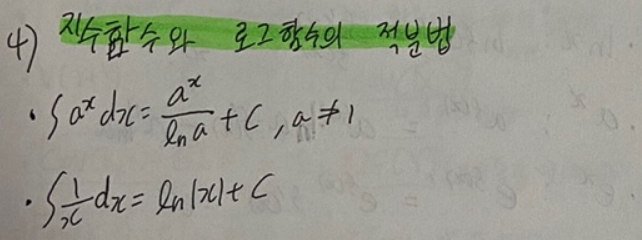 4) 지수함수와 로그함수의 적분법
· ∫a^x dx = a^x / ln a + C, a ≠ 1
· ∫1/x dx = ln|x| + C